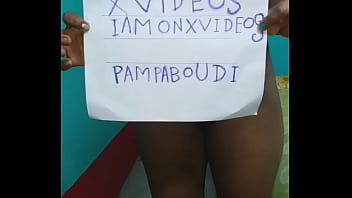 XVIDEOS
IAMONXVIDEOS
PAMPABOUDI